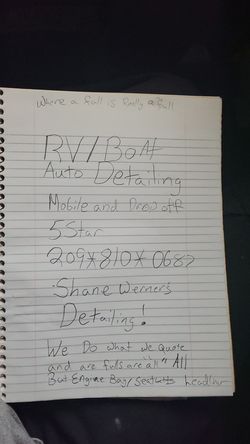 Where a full is Really a full
RV/Boat
Auto Detailing
Mobile and Drop off
5 Star
209*810*0687
Shane Werner's
Detailing!
We Do what we quote
and are fulls are "all" All
But Engine Bay/ headliner